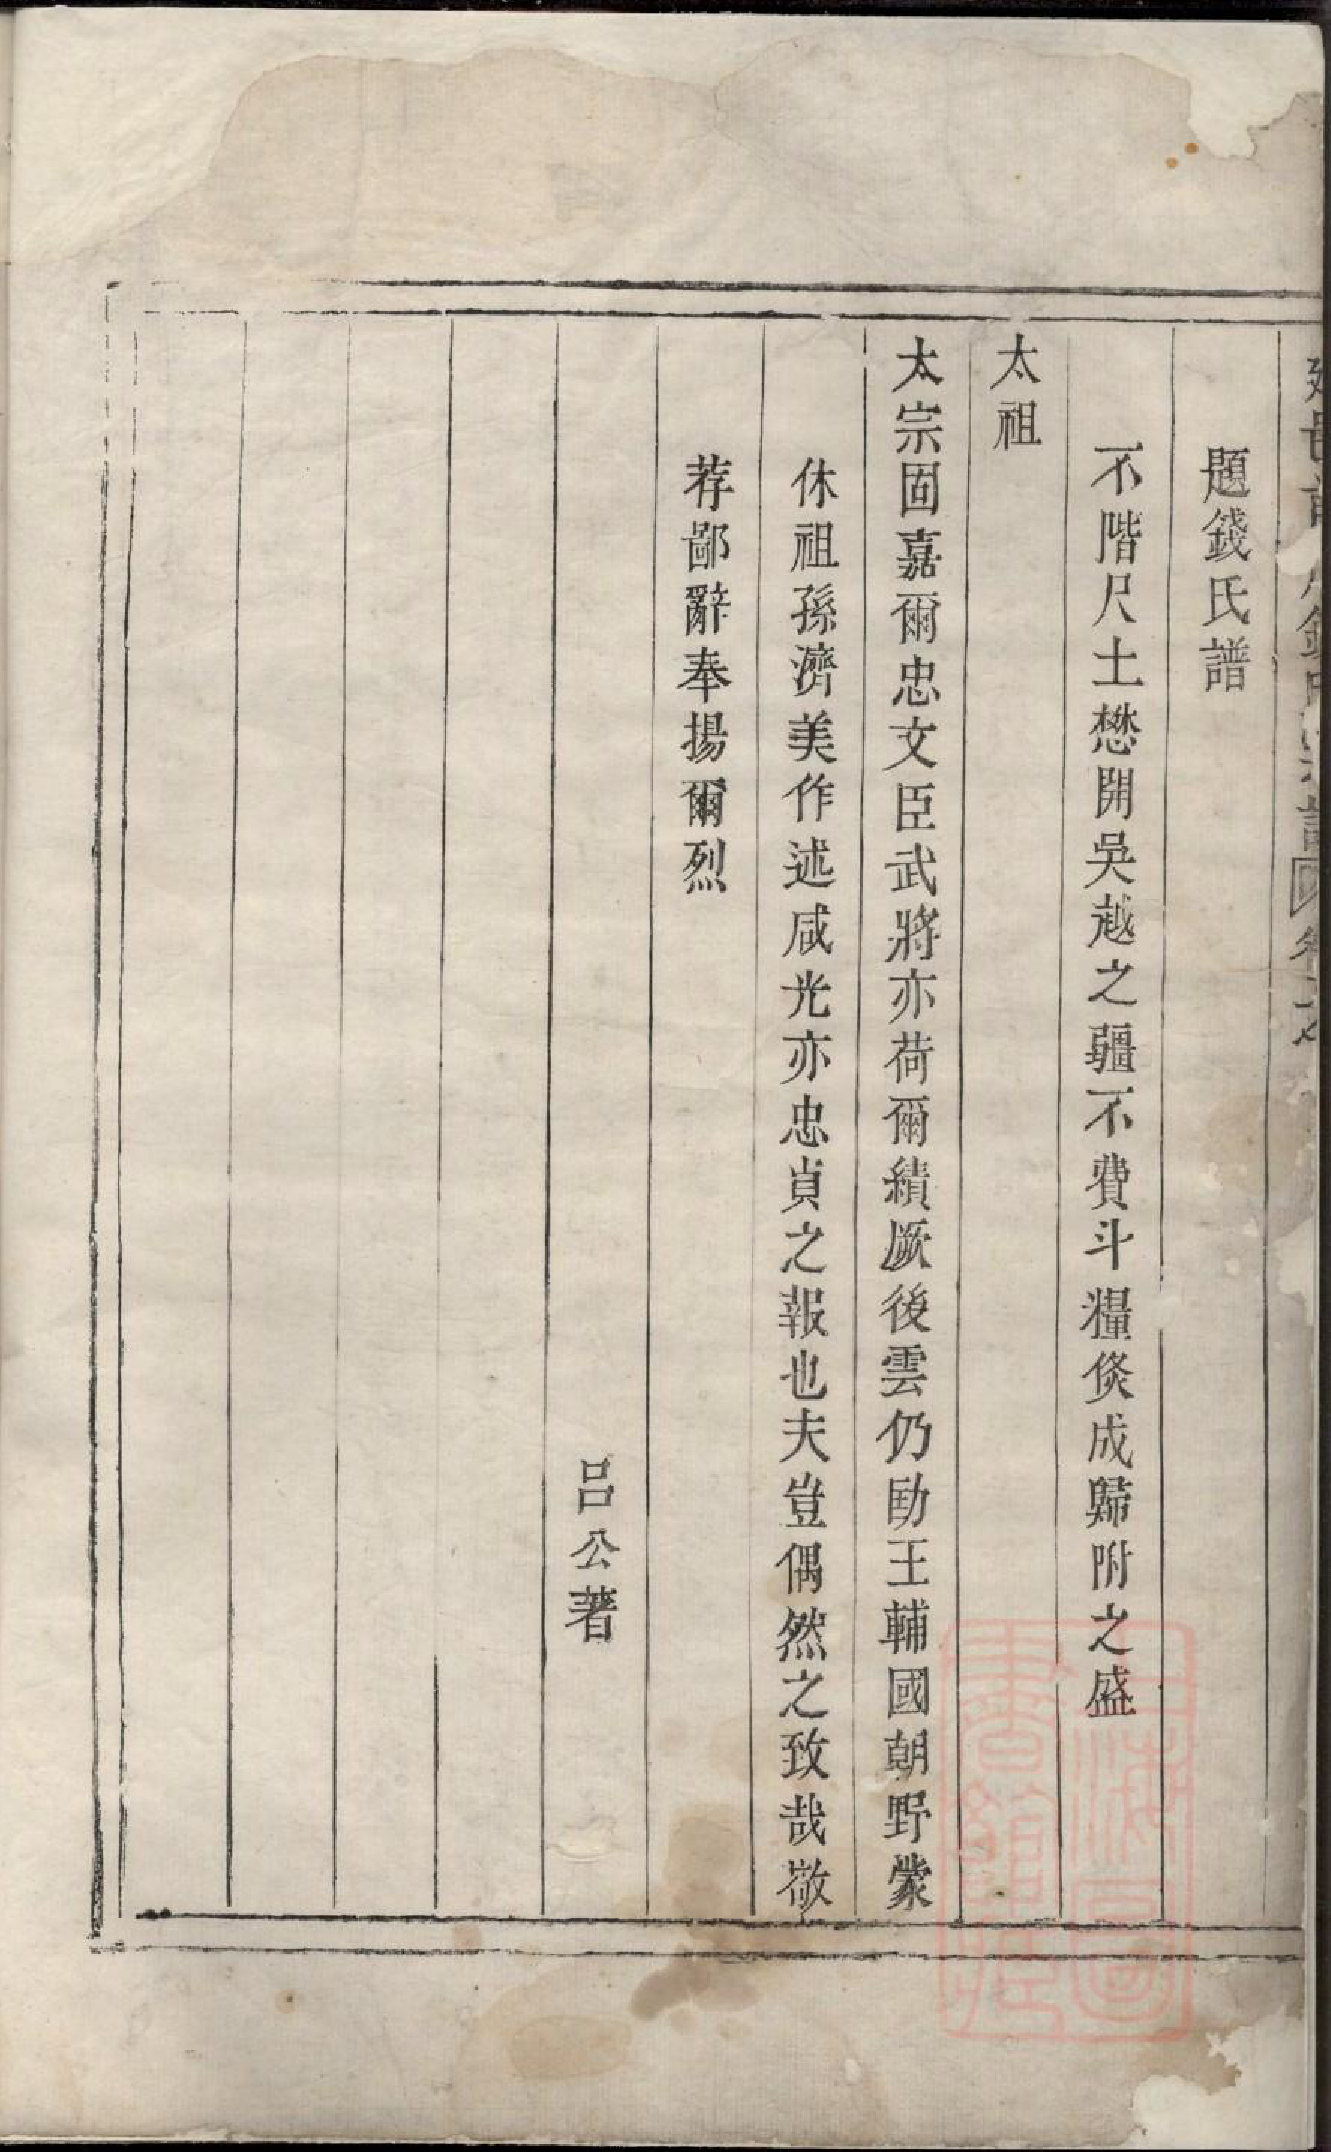 題錢氏譜
不階尺土懋開吳越之疆不費斗糧倐成歸附之盛
太祖
太宗固嘉爾忠文臣武將亦荷爾績厥後雲仍助王輔國朝野蒙
休祖孫濟美作述咸光亦忠貞之報也夫豈偶然之致哉敬
荐鄙辭奉揚爾烈
呂公著
上海圖
書館藏